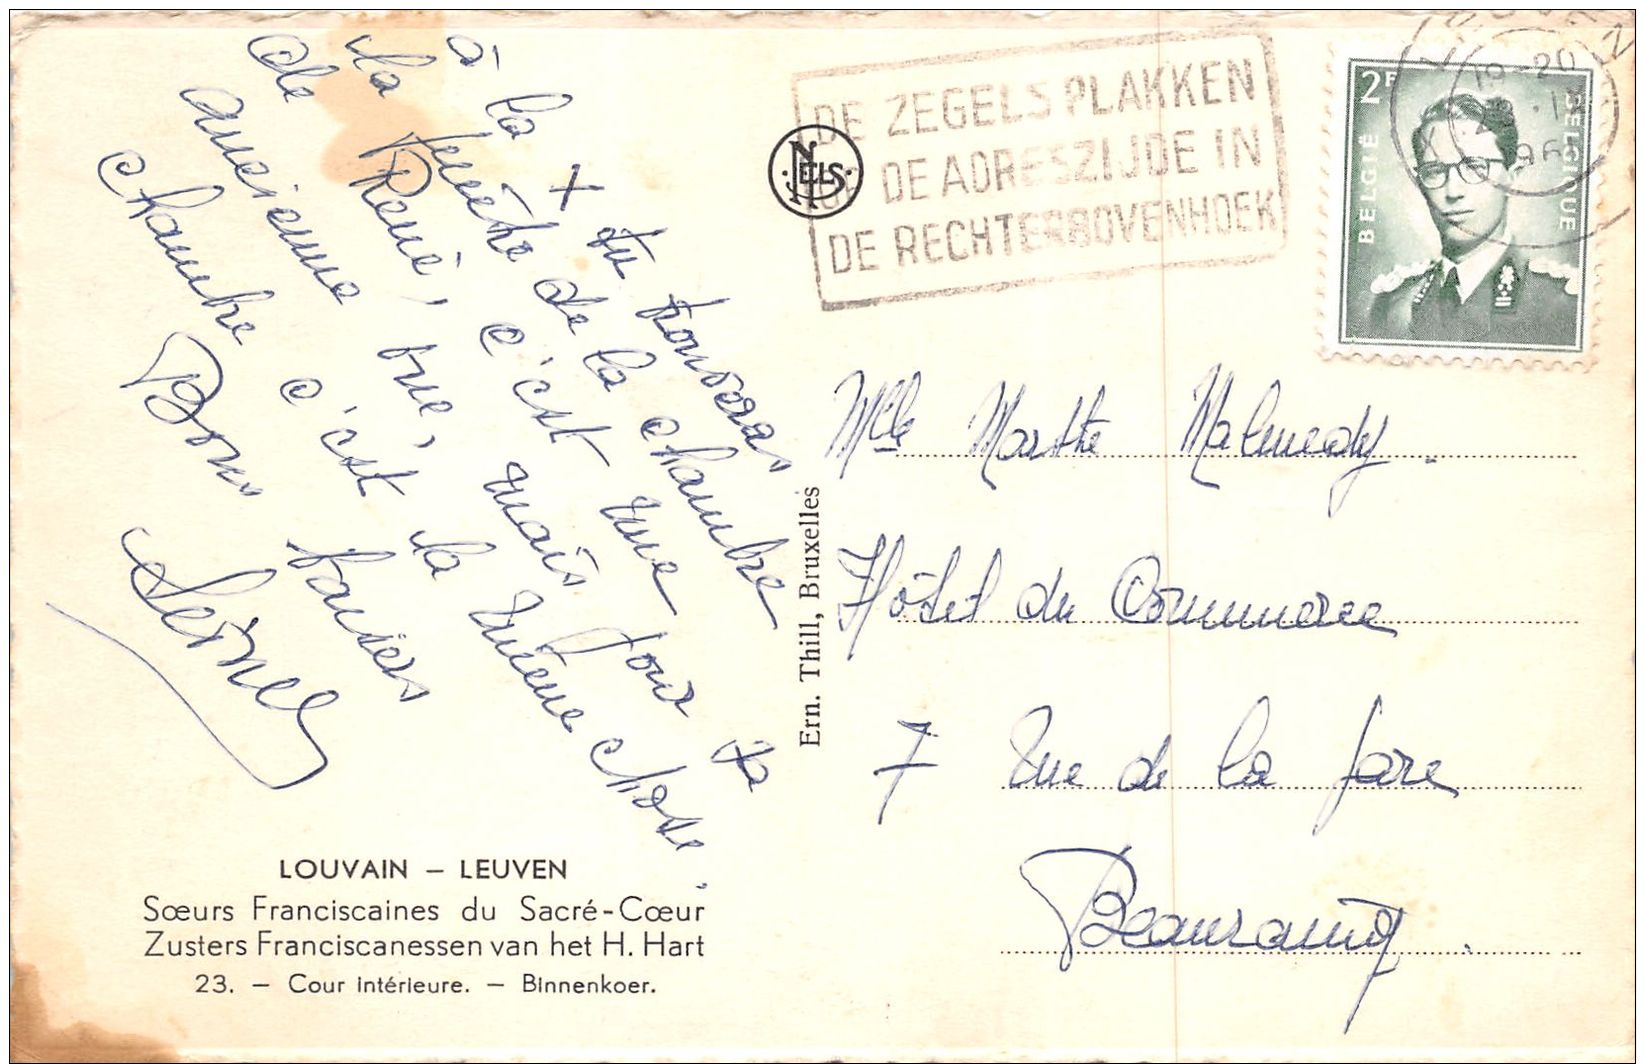 + tu trouveras
à la fenêtre de la chambre
la René, c'est une pour ta
de ancienne vue, mais
chambre c'est la même chose.
Bons baisers
LOUVAIN – LEUVEN
Sœurs Franciscaines du Sacré-Cœur
Zusters Franciscanessen van het H. Hart
23. – Cour intérieure. – Binnenkoer.
Ern. Thill, Bruxelles
NELS
DE ZEGELS PLAKKEN
OP DE ADRESZIJDE IN
DE RECHTERBOVENHOEK
2F
BELGIË
BELGIQUE
19-20
Mlle Marthe Malmedy.
Hôtel du Commerce
7 rue de la gare
Beauraing.